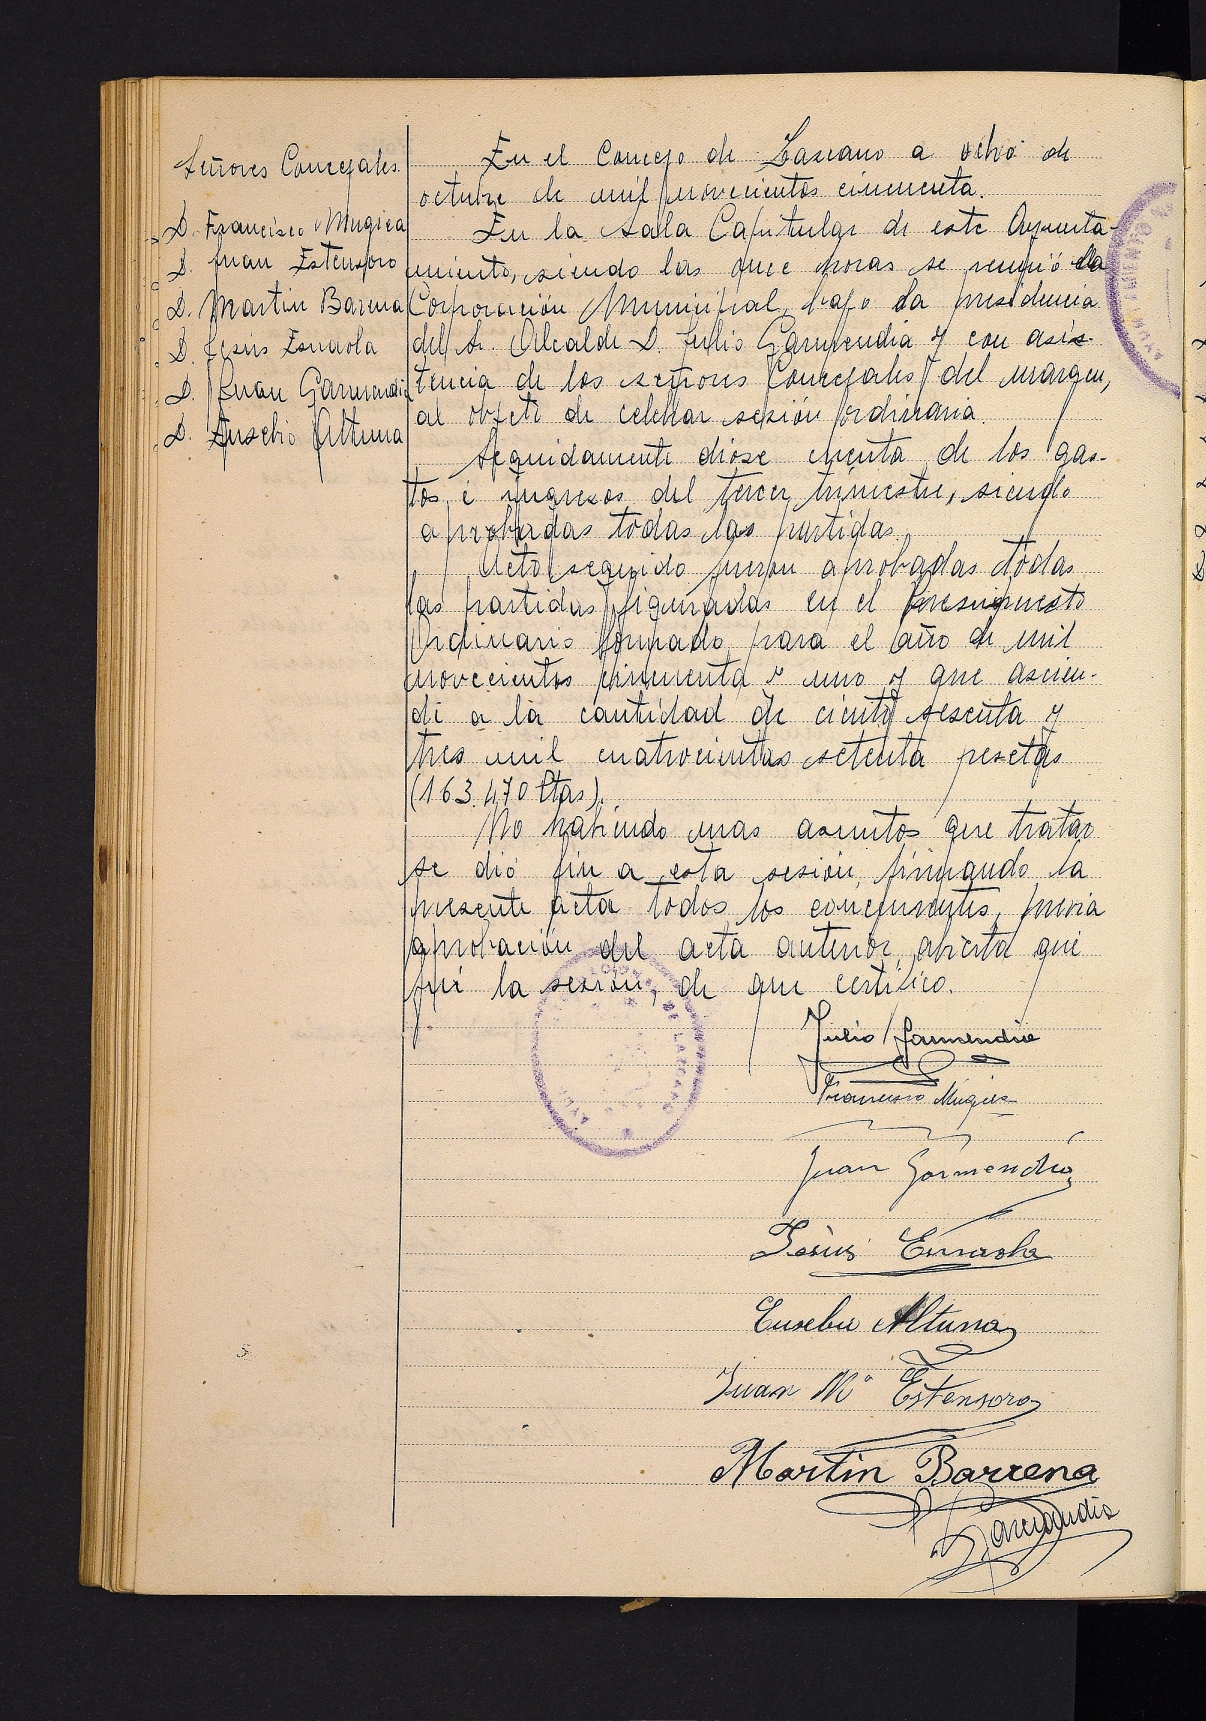 Señores Concejales
D. Francisco Mugica
D. Juan Estensoro
D. Martin Barena
D. Jesus Esnaola
D. Juan Garmendia
D. Eusebio Altuna
En el Concejo de Lazcano a ocho de
octubre de mil novecientos cincuenta.
En la Sala Capitular de este Ayunta-
miento, siendo las once horas se reunió la
Corporación Municipal, bajo la presidencia
del Sr. Alcalde D. Julio Garmendia y con asis-
tencia de los señores Concejales del margen,
al objeto de celebrar sesión ordinaria.
Seguidamente dióse cuenta de los gas-
tos é ingresos del tercer trimestre, siendo
aprobadas todas las partidas.
Acto seguido fueron aprobadas todas
las partidas figuradas en el presupuesto
Ordinario formado para el año de mil
novecientos cincuenta y uno y que ascien-
de a la cantidad de ciento sesenta y
tres mil cuatrocientas setenta pesetas
(163.470 Ptas).
No habiendo mas asuntos que tratar
se dió fin a esta sesión, firmando la
presente acta todos los concurrentes, previa
aprobación del acta anterior, abierta que
fué la sesión, de que certifico.
Julio Garmendia
Francisco Mugica
Juan Garmendia
Jesús Esnaola
Eusebio Altuna
Juan Mª Estensoro
Martin Barrena